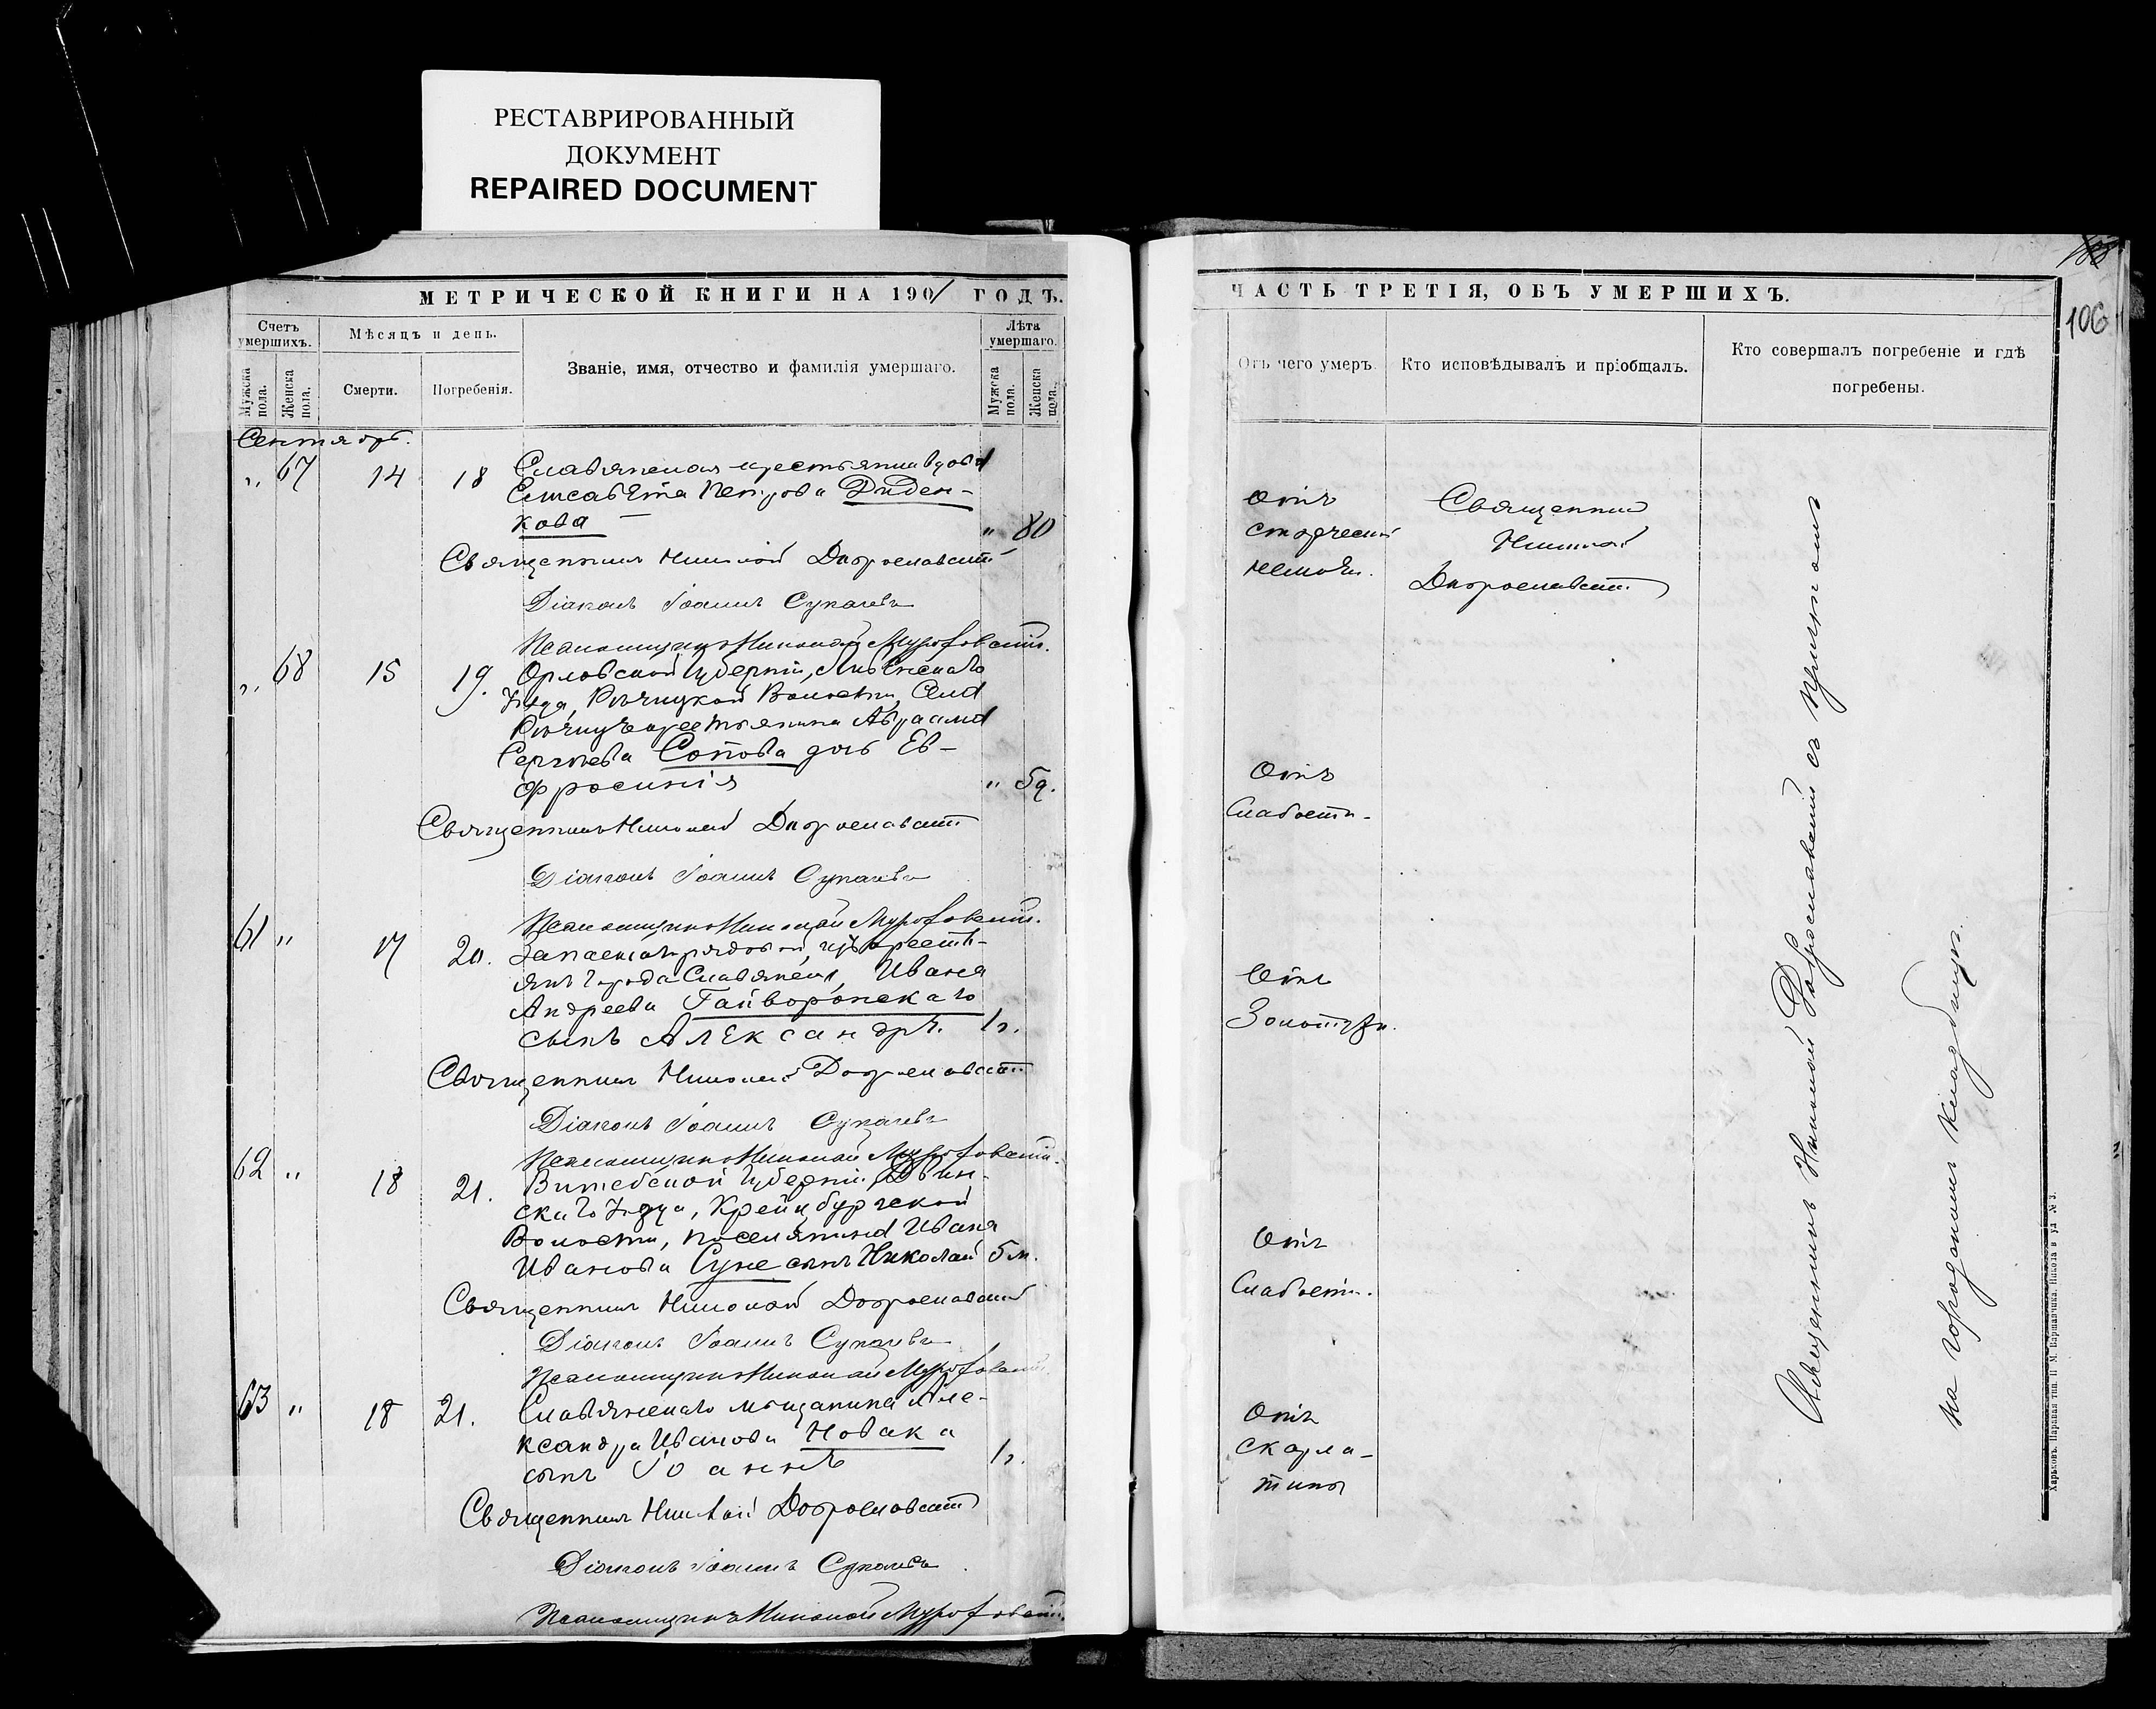 РЕСТАВРИРОВАННЫЙ
ДОКУМЕНТ
REPAIRED DOCUMENT
МЕТРИЧЕСКОЙ КНИГИ НА 1901 ГОДЪ.
Счетъ умершихъ.
Мужска пола.
Женска пола.
Мѣсяцъ и день.
Смерти.
Погребенія.
Званіе, имя, отчество и фамилія умершаго.
Лѣта умершаго.
Мужска пола.
Женска пола.
Сентябрь.
„ 67 14 18 Славянская крестьянка вдова
Елисавета Петрова Диден-
кова „ 80
Священникъ Николай Доброславскій
Діаконъ Іоаннъ Сукачевъ
Псаломщикъ Николай
„ 68 15 19. Орловской губерніи, Ливенскаго
уѣзда, Рѣчицкой Волости, Села
Рѣчицъ крестьянина Авраама
Сергѣева Сопова дочь Ев-
фросинія „ 5д.
Священникъ Николай Доброславскій
Діаконъ Іоаннъ Сукачевъ
Псаломщикъ Николай
61 „ 17 20. Запаснаго рядового, изъ крестъ-
янъ города Славянска, Ивана
Андреева Гайворонскаго
сынъ Александръ. 1г.
Священникъ Николай Доброславскій
Діаконъ Іоаннъ Сукачевъ
Псаломщикъ Николай
62 „ 18 21. Витебской губерніи, Двин-
скаго уѣзда, Крейцбургской
Волости, поселянина Ивана
Иванова Суне сынъ Николай 5м.
Священникъ Николай Доброславскій
Діаконъ Іоаннъ Сукачевъ
Псаломщикъ Николай
63 „ 18 21. Славянскаго мѣщанина Але-
ксандра Иванова Новака
сынъ Іоаннъ 1г.
Священникъ Николай Доброславскій
Діаконъ Іоаннъ Сукачевъ
Псаломщикъ Николай
ЧАСТЬ ТРЕТІЯ, ОБЪ УМЕРШИХЪ.
106
Отъ чего умеръ.
Кто исповѣдывалъ и пріобщалъ.
Кто совершалъ погребеніе и гдѣ
погребены.
Отъ
старческой
немощи.
Священникъ
Николай
Доброславскій
Отъ
Слабости.
Отъ
Золотухи.
Отъ
Слабости.
Отъ
скарла-
тины
Священникъ Николай Доброславскій съ причтомъ
на городскомъ кладбищѣ.